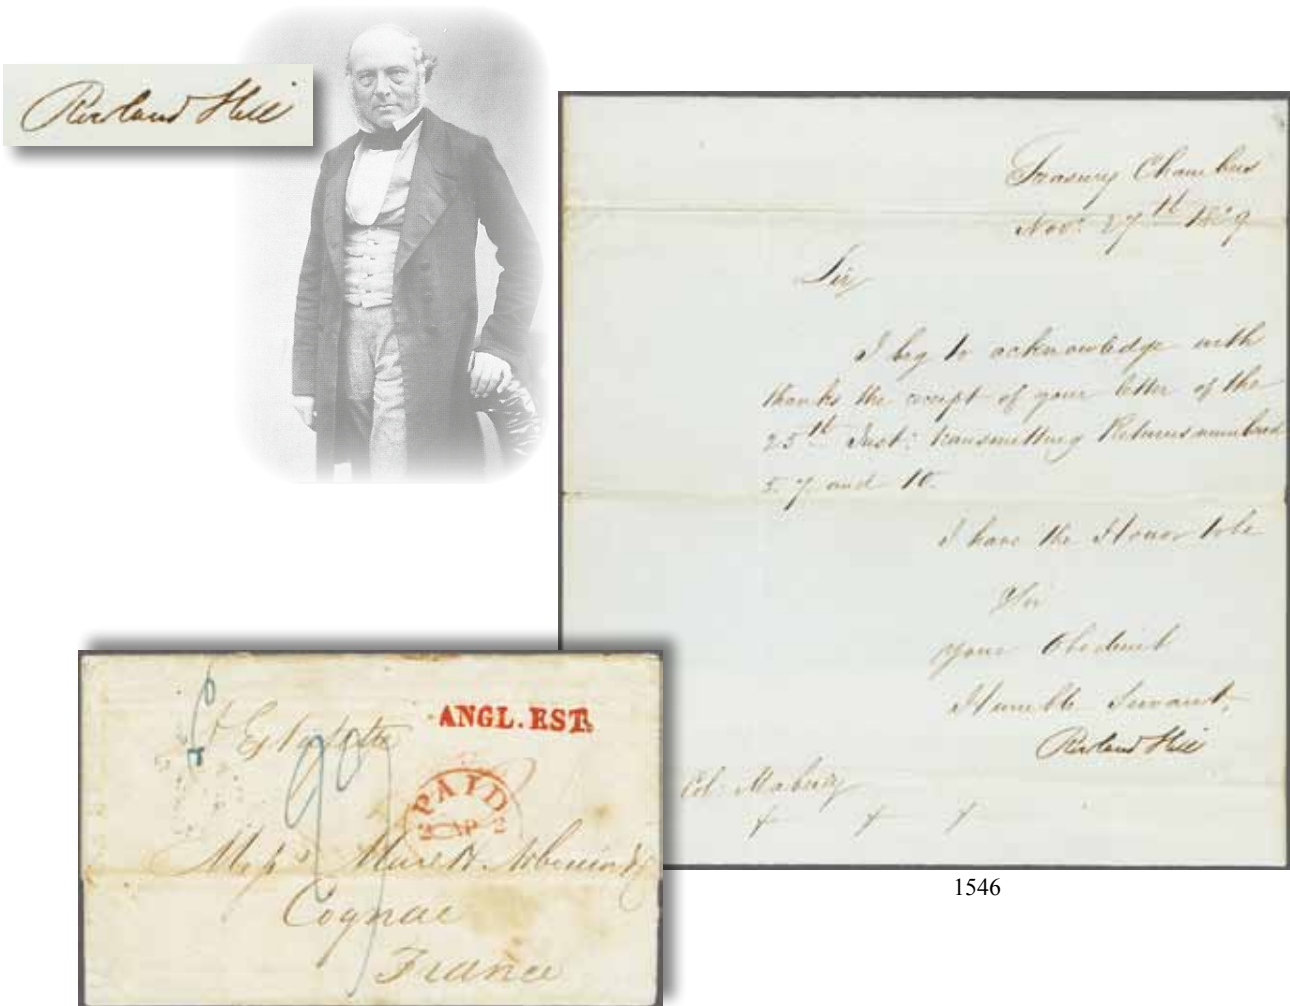 Rowland Hill
Treasury Chambers
Nov: 27th 1839
Sir
I beg to acknowledge with
thanks the receipt of your letter of the
25th Inst: transmitting Returns numbered
5. 7. and 10.
I have the Honor to be
Sir
Your Obedient
Humble Servant,
Rowland Hill
Col: Maberly
1546
ANGL. EST.
PAID
AP 2
Cognac
France